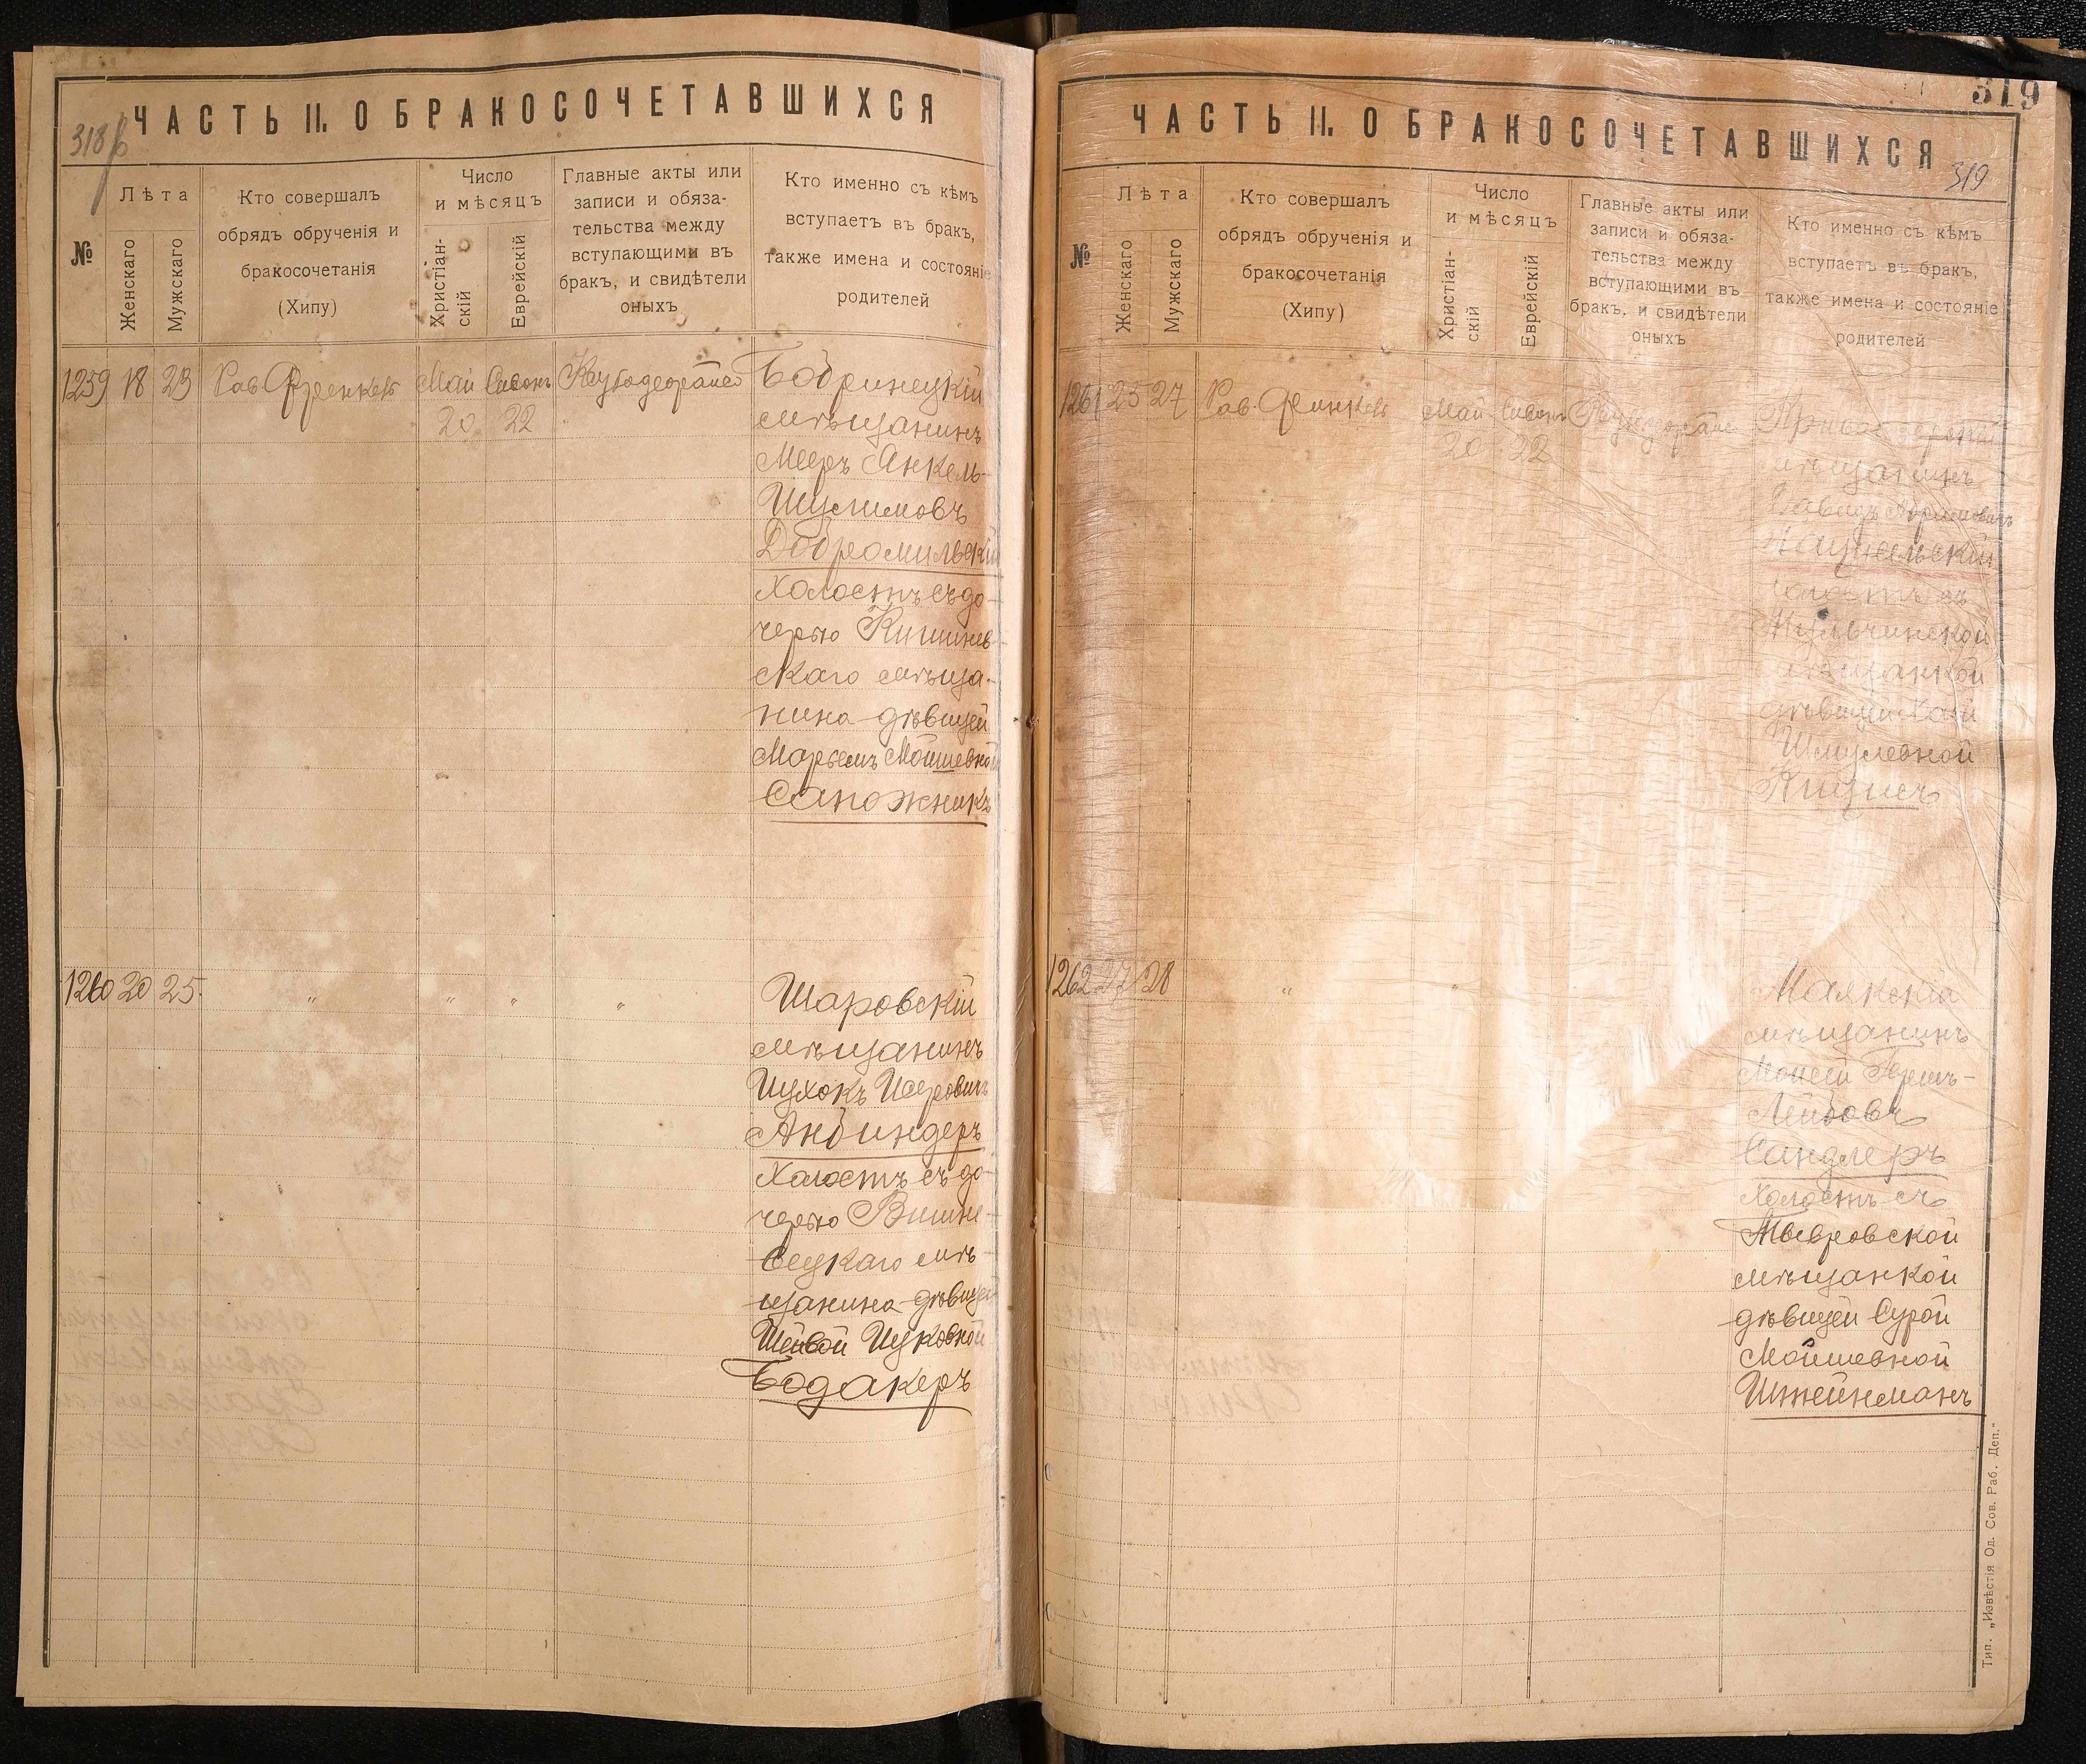 318б
ЧАСТЬ II. О БРАКОСОЧЕТАВШИХСЯ
№
Лѣта
Женскаго
Мужскаго
Кто совершалъ
обрядъ обрученія и
бракосочетанія
(Хипу)
Число
и мѣсяцъ
Христіан-
скій
Еврейскій
Главные акты или
записи и обяза-
тельства между
вступающими въ
бракъ, и свидѣтели
оныхъ
Кто именно съ кѣмъ
вступаетъ въ бракъ,
также имена и состояніе
родителей
1259 18 23 Рав. Френкель Май Сивонъ
20 22
Бобринецкій
мѣщанинъ
Мееръ Янкель-
Шулимовъ
Добромильскій
холостъ съ до-
черью Кишинев-
скаго мѣща-
нина дѣвицей
Марьемъ Мойшевной
Сапожникъ
1260 20 25. " " " "
Шаровскій
мѣщанинъ
Ицхокъ
Анбиндеръ
холостъ съ до-
черью Вишне-
вецкаго мѣ-
щанина дѣвицей
Шейвой Ицковной
Бодакеръ
319
ЧАСТЬ II. О БРАКОСОЧЕТАВШИХСЯ
319
№
Лѣта
Женскаго
Мужскаго
Кто совершалъ
обрядъ обрученія и
бракосочетанія
(Хипу)
Число
и мѣсяцъ
Христіан-
скій
Еврейскій
Главные акты или
записи и обяза-
тельства между
вступающими въ
бракъ, и свидѣтели
оныхъ
Кто именно съ кѣмъ
вступаетъ въ бракъ,
также имена и состояніе
родителей
1261 25 27 Рав. Френкель Май Сивонъ
20 22
мѣщанинъ
Давидъ Абрамовичъ
холостъ съ
Тульчинской
мѣщанкой
дѣвицей Хаей
Шмулевной
1262 27 28 " "
Маякскій
мѣщанинъ
Моисей Гершъ-
Лейбовъ
Сандлеръ
холостъ съ
Тывровской
мѣщанкой
дѣвицей Сурой
Мойшевной
Штейнманъ
Тип. „Извѣстія Од. Сов. Раб. Деп."